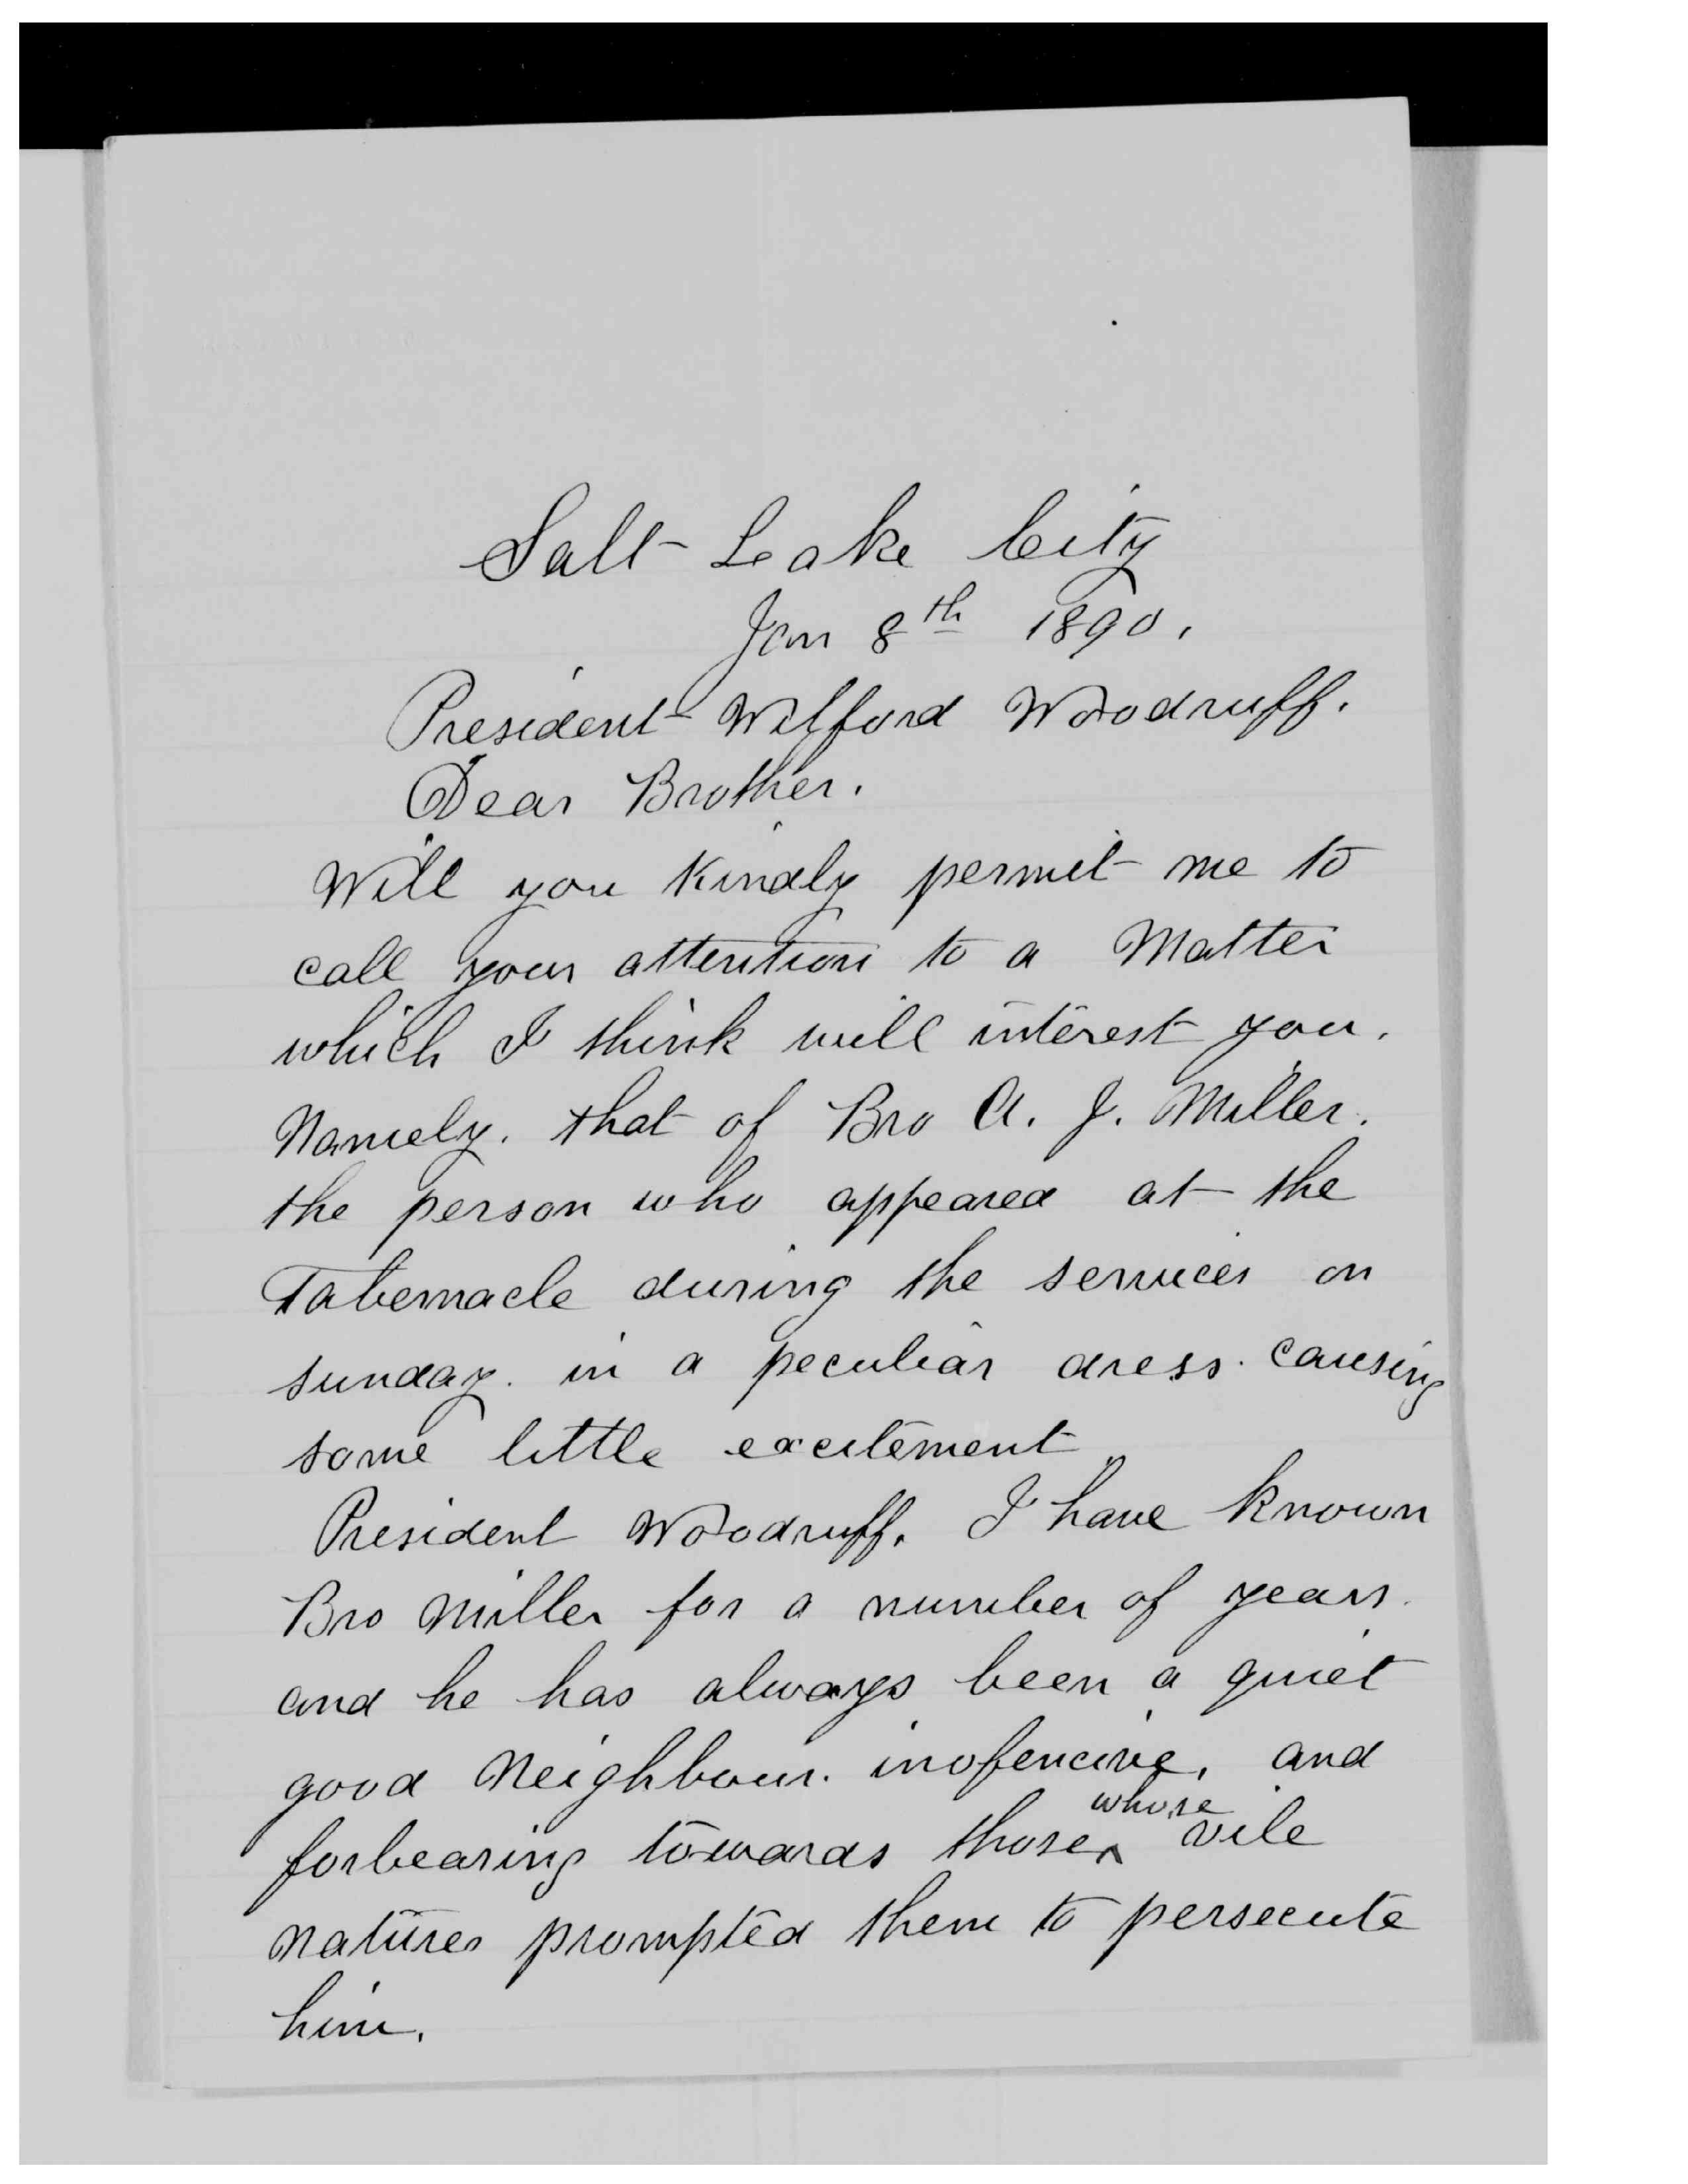 Salt Lake City
Jan 8th 1890.
President Wilford Woodruff.
Dear Brother.
Will you Kindly permit me to
call your attention to a Matter
which I think will interest you.
Namely. that of Bro A. J. Miller.
the person who appeared at the
Tabernacle during the services on
sunday. in a peculiar dress. causing
some little excitement
President Woodruff. I have known
Bro Miller for a number of years.
and he has always been a quiet
good Neighbour. inofencive, and
whose
forbearing towards those^ vile
natures prompted them to persecute
him.